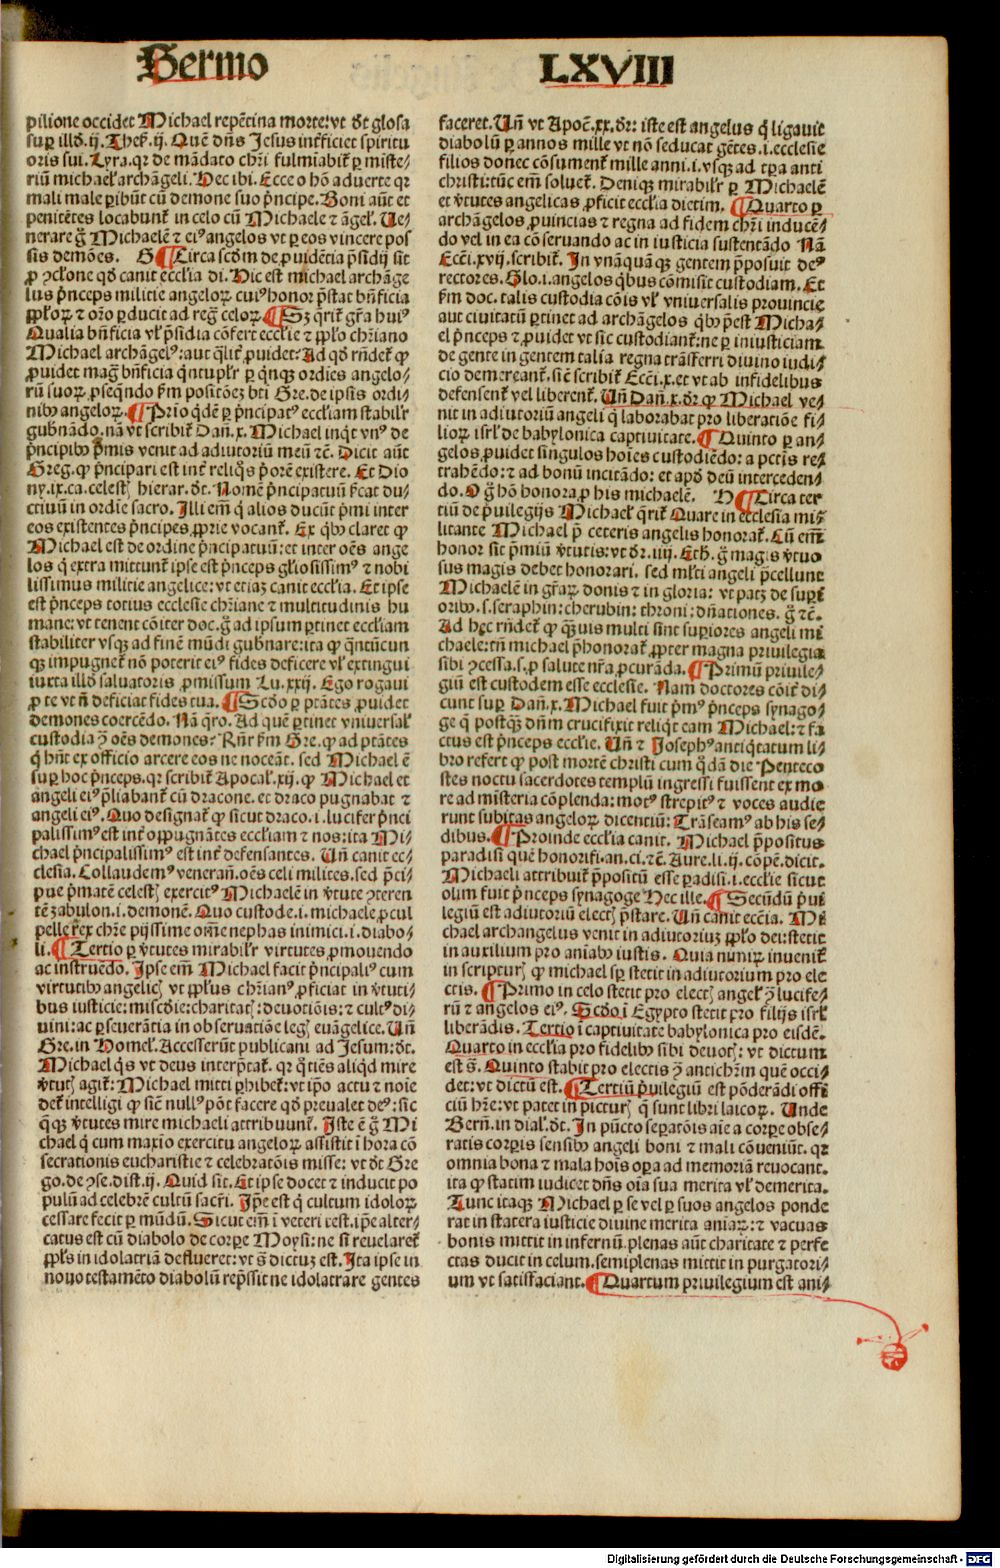 Sermo LXVIII
pilione occidet Michael repẽtina morte: vt dt glosa
sup illd. ij. Thes. ij. Quẽ dñs Jesus inťficiet spiritu
oris sui. Lyra. qr de mãdato chri fulmĩabit p miste/
riũ michael archãgeli. Hec ibi. Ecce o hõ aduerte qr
mali male pibũt cũ demone suo pncipe. Boni aũt et
penitẽtes locabunt in celo cũ Michaele ⁊ ãgel. Ue/
nerare g Michaelẽ ⁊ eiꝰ angelos vt p eos vincere pos
sis demões. G ¶ Circa scdm de puidẽtia psidij sit
p ꝯclone qd canit ecclia di. Hic est michael archãge
lus pnceps militie angeloꝝ cuiꝰ honor pstat bñficia
pploꝝ ⁊ orõ pducit ad regͣ celoꝝ. ¶ Sꝫ qrit gra huiꝰ
Qualia bñficia vl psidia cõfert ecclie ⁊ pplo chriano
Michael archãgelꝰ: aut qlit puidet: Ad qd rñdet ꝙ
puidet magͣ bñficia qntuplr p qnqꝫ ordies angelo/
rũ suoꝝ pseqndo fm positões bti Gre. de ipsis ordi/
nibꝰ angeloꝝ. ¶ Prio qdẽ p pncipatꝰ eccliam stabilr
gubnãdo. nã vt scribit Dañ. x. Michael inqt vnꝰ de
pncipibꝰ pmis venit ad adiutoriũ meũ ⁊c. Dicit aũt
Greg. ꝙ pncipari est int reliqs priorẽ existere. Et Dio
ny. ix. ca. celest hierar. dt. Nomẽ pncipatuũ ficat du/
ctiuũ in ordie sacro. Illi em q alios ducũt pmi inter
eos existentes pncipes pprie vocant. Ex qbꝰ claret ꝙ
Michael est de ordine pncipatuũ: et inter oẽs ange
los q extra mittunt ipse est pnceps gliosissimꝰ ⁊ nobi
lissimus militie angelice: vt etiaꝫ canit ecclia. Et ipse
est pnceps totius ecclesie chriane ⁊ multitudinis hu
mane: vt tenent cõiter doc. g ad ipsum ptinet eccliam
stabiliter vsqꝫ ad finẽ mũdi gubnare: ita ꝙ qntũcun
qꝫ impugnet nõ poterit eiꝰ fides deficere vl extingui
iuxta illd saluatoris pmissum Lu. xxij. Ego rogaui
p te vt ñ deficiat fides tua. ¶ Scdo p ptãtes puidet
demones coercẽdo. Nã qro. Ad quẽ ptinet vniuersal
custodia ꝯ oẽs demones: Rñr fm Gre. ꝙ ad ptãtes
q hñt ex officio arcere eos ne noceãt. sed Michael ẽ
sup hoc pnceps. qr scribit Apocal. xij. ꝙ Michael et
angeli eiꝰ pliabant cũ dracone. et draco pugnabat ⁊
angeli eiꝰ. Quo designat ꝙ sicut draco. i. lucifer pnci
palissimꝰ est int oppugnãtes eccliam ⁊ nos: ita Mi/
chael pncipalissimꝰ est int defensantes. Uñ canit ec/
clesia. Collaudemꝰ venerañ. oẽs celi milites. sed pci/
pue pmatẽ celest exercitꝰ Michaelẽ in vtute ꝯteren
tẽ zabulon. i. demonẽ. Quo custode. i. michaele pcul
pelle rex chre pijssime omẽ nephas inimici. i. diabo/
li. ¶ Tertio p vtutes mirabilr virtutes pmouendo
ac instruẽdo. Ipse em Michael facit pncipaliꝰ cum
virtutibꝰ angelicꝭ vt pplus chrianꝰ pficiat in vtuti/
bus iusticie: miscdie: charitatꝭ: deuotiõis: ⁊ cultꝰ di/
uini: ac pseuerãtia in obseruatiõe legꝭ euãgelice. Uñ
Gre. in Homel. Accesserũt publicani ad Jesum: dt.
Michael qs vt deus interptat. qr qtiẽs aliqd mire
vtutꝭ agit: Michael mitti phibet: vt ipo actu ⁊ noie
det intelligi ꝙ sicut nullꝰ põt facere qd preualet deꝰ: sic
qꝫ vtutes mire michaeli attribuunt. Iste ẽ g Mi
chael q cum maxio exercitu angeloꝝ assistit i hora cõ
secrationis eucharistie ⁊ celebratõis misse: vt dt Gre
go. de ꝯse. dist. ij. Quid sit. Et ipse docet ⁊ inducit po
pulũ ad celebrẽ cultũ sacri. Ipse est q cultum idoloꝝ
cessare fecit p mũdũ. Sicut em i veteri test. ipe alter/
catus est cũ diabolo de corpe Moysi: ne si reuelaret
ppls in idolatriã deflueret: vt s dictuꝫ est. Ita ipse in
nouo testamẽto diabolũ repssit ne idolatrare gentes
faceret. Uñ vt Apoc. xx. dr: iste est angelus q ligauit
diabolũ p annos mille vt nõ seducat gẽtes. i. ecclesie
filios donec cõsument mille anni. i. vsqꝫ ad tpa anti
christi: tũc em soluet. Deniqꝫ mirabilr p Michaelẽ
et vtutes angelicas pficit ecclia dietim. ¶ Quarto p
archãgelos puincias ⁊ regna ad fidem chri inducẽ/
do vel in ea cõseruando ac in iusticia sustentãdo Nã
Ecci. xvij. scribit. In vnãquãqꝫ gentem pposuit deꝰ
rectores. Glo. i. angelos qbus cõmisit custodiam. Et
fm doc. talis custodia cõis vl vniuersalis prouincie
aut ciuitatũ ptinet ad archãgelos qbꝰ pest Micha/
el pnceps ⁊ puidet vt sic custodiant: ne p iniusticiam
de gente in gentem talia regna trãsferri diuino iudi/
cio demereant. sicut scribit Ecci. x. et vt ab infidelibus
defensent vel liberent. Uñ Dañ. x. dr ꝙ Michael ve/
nit in adiutoriũ angeli q laborabat pro liberatiõe fi/
lioꝝ isrl de babylonica captiuitate. ¶ Quinto p an/
gelos puidet singulos hoies custodiẽdo: a pctis re/
trahẽdo: ⁊ ad bonũ incitãdo: et apd deũ interceden/
do. O g hõ honora p his michaelẽ. H ¶ Circa ter
tiũ de puilegijs Michael qrit Quare in ecclesia mi/
litante Michael p ceteris angelis honorat. Cũ em
honor sit pmiũ vtutis: vt dr. iiij. Eth. g magis vtuo
sus magis debet honorari. sed mlti angeli pcellunt
Michaelẽ in graꝝ donis ⁊ in gloria: vt patꝫ de supi
oribꝰ. s. seraphin: cherubin: throni: dñationes. g ⁊c.
Ad hec rñdet ꝙ qꝫuis multi sint supiores angeli mi
chaele: tñ michael phonorat ppter magna priuilegia
sibi ꝯcessa. s. p salute nra pcurãda. ¶ Primũ priuile/
giũ est custodem esse ecclesie. Nam doctores cõit di/
cunt sup Dañ. x. Michael fuit pmꝰ pnceps synago/
ge q postqꝫ dñm crucifixit reliqt eam Michael: ⁊ fa
ctus est pnceps ecclie. Uñ ⁊ Josephꝰ antiqtatum li/
bro refert ꝙ post mortẽ christi cum qdã die Penteco
stes noctu sacerdotes templũ ingressi fuissent ex mo
re ad misteria cõplenda: motꝰ strepitꝰ ⁊ voces audie
runt subitas angeloꝝ dicentiũ: Trãseamꝰ ab his se/
dibus. ¶ Proinde ecclia canit. Michael ppositus
paradisi quẽ honorifi. an. ci. ⁊c. Aure. li. ij. cõpẽ. dicit.
Michaeli attribuit ppositũ esse padisi. i. ecclie sicut
olim fuit pnceps synagoge Hec ille. ¶ Secũdũ pui
legiũ est adiutoriũ electꝭ pstare. Uñ canit eccia. Mi
chael archangelus venit in adiutoriuꝫ pplo dei: stetit
in auxilium pro aniabꝰ iustis. Quia nunqꝫ inuenit
in scripturꝭ ꝙ michael sp stetit in adiutorium pro ele
ctis. ¶ Primo in celo stetit pro electꝭ angel ꝯ lucife/
rũ ⁊ angelos eiꝰ. Scdo i Egypto stetit pro filijs isrl
liberãdis. Tertio i captiuitate babylonica pro eisdẽ.
Quarto in ecclia pro fidelibꝰ sibi deuotꝭ: vt dictum
est s. Quinto stabit pro electis ꝯ antichrm quẽ occi/
det: vt dictũ est. ¶ Tertiũ puilegiũ est põderãdi offi
ciũ hre: vt patet in picturꝭ q sunt libri laicoꝝ. Unde
Berñ. in dial. dt. In pũcto sepatõis aie a corpe obse/
ratis corpis sensibꝰ angeli boni ⁊ mali cõueniũt. qr
omnia bona ⁊ mala hois opa ad memoriã reuocant.
ita ꝙ statim iudicet dñs oia sua merita vl demerita.
Tunc itaqꝫ Michael p se vel p suos angelos ponde
rat in statera iusticie diuine merita aniaꝝ: ⁊ vacuas
bonis mittit in infernũ. plenas aũt charitate ⁊ perfe
ctas ducit in celum. semiplenas mittit in purgatori/
um vt satisfaciant. ¶ Quartum priuilegium est ani/
Digitalisierung gefördert durch die Deutsche Forschungsgemeinschaft - DFG